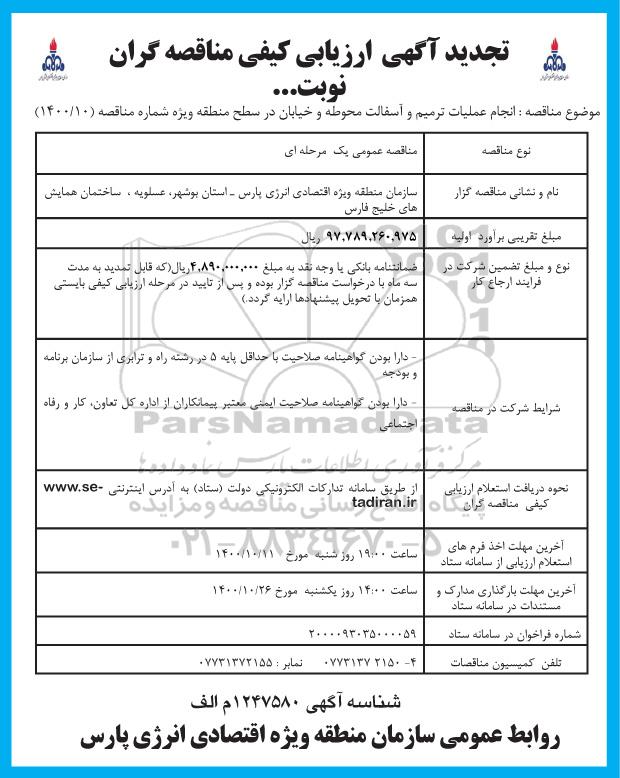 تجدید آگهی ارزیابی کیفی مناقصه گران
نوبت...
موضوع مناقصه : انجام عملیات ترمیم و آسفالت محوطه و خیابان در سطح منطقه ویژه شماره مناقصه (۱۴۰۰/۱۰)
نوع مناقصه
مناقصه عمومی یک مرحله ای
نام و نشانی مناقصه گزار
سازمان منطقه ویژه اقتصادی انرژی پارس ـ استان بوشهر، عسلویه ، ساختمان همایش
های خلیج فارس
مبلغ تقریبی برآورد اولیه
۹۷.۷۸۹.۲۶۰.۹۷۵ ریال
نوع و مبلغ تضمین شرکت در
فرایند ارجاع کار
ضمانتنامه بانکی یا وجه نقد به مبلغ ۴.۸۹۰.۰۰۰.۰۰۰ریال(که قابل تمدید به مدت
سه ماه با درخواست مناقصه گزار بوده و پس از تایید در مرحله ارزیابی کیفی بایستی
همزمان با تحویل پیشنهادها ارایه گردد.)
شرایط شرکت در مناقصه
- دارا بودن گواهینامه صلاحیت با حداقل پایه ۵ در رشته راه و ترابری از سازمان برنامه
و بودجه
- دارا بودن گواهینامه صلاحیت ایمنی معتبر پیمانکاران از اداره کل تعاون، کار و رفاه
اجتماعی
ParsNamadData
مرکز فرآوری اطلاعات پارس نماد داده ها
نحوه دریافت استعلام ارزیابی
کیفی مناقصه گران
از طریق سامانه تدارکات الکترونیکی دولت (ستاد) به آدرس اینترنتی www.se-
tadiran.ir
پایگاه اطلاع رسانی مناقصه و مزایده
۰۲۱-۸۸۳۴۹۶۷۰-۵
آخرین مهلت اخذ فرم های
استعلام ارزیابی از سامانه ستاد
ساعت ۱۹:۰۰ روز شنبه مورخ ۱۴۰۰/۱۰/۱۱
آخرین مهلت بارگذاری مدارک و
مستندات در سامانه ستاد
ساعت ۱۴:۰۰ روز یکشنبه مورخ ۱۴۰۰/۱۰/۲۶
شماره فراخوان در سامانه ستاد
۲۰۰۰۰۹۳۰۳۵۰۰۰۰۵۹
تلفن کمیسیون مناقصات
۴- ۲۱۵۰ ۰۷۷۳۱۳۷ نمابر : ۰۷۷۳۱۳۷۲۱۵۵
شناسه آگهی ۱۲۴۷۵۸۰م الف
روابط عمومی سازمان منطقه ویژه اقتصادی انرژی پارس